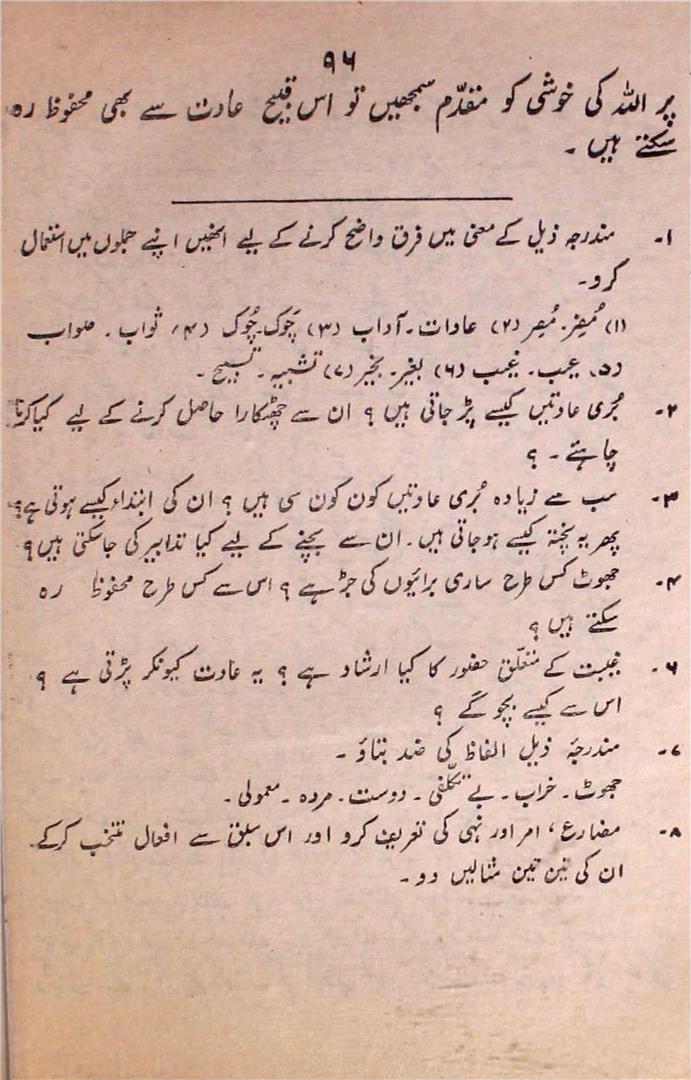 ۹۶
پر اللہ کی خوشی کو مقدّم سمجھیں تو اس قبیح عادت سے بھی محفوظ رہ
سکتے ہیں ۔
۱۔ مندرجہ ذیل کے معنی میں فرق واضح کرنے کے لیے انھیں اپنے جملوں میں استعمال
کرو۔
(۱) مُضِر۔ مُصِر (۲) عادات۔ آداب (۳) چَوک۔ چُوک (۴) ثواب ۔ صواب
(۵) عیب۔ غیب (۶) بغیر۔ بخیر (۷) تشبیہ ۔ تسبیح ۔
۲۔ بُری عادتیں کیسے پڑ جاتی ہیں ؟ ان سے چھٹکارا حاصل کرنے کے لیے کیا کرنا
چاہئے ۔ ؟
۳۔ سب سے زیادہ بُری عادتیں کون کون سی ہیں ؟ ان کی ابتداء کیسے ہوتی ہے؟
پھر یہ پختہ کیسے ہوجاتی ہیں۔ ان سے بچنے کے لیے کیا تدابیر کی جاسکتی ہیں؟
۴۔ جھوٹ کس طرح ساری برائیوں کی جڑ ہے ؟ اس سے کس طرح محفوظ رہ
سکتے ہیں ؟
۶۔ غیبت کے متعلّق حضور کا کیا ارشاد ہے ؟ یہ عادت کیونکر پڑتی ہے ؟
اس سے کیسے بچو گے ؟
۷۔ مندرجۂ ذیل الفاظ کی ضد بتاؤ ۔
جھوٹ۔ خراب۔ بے تکلّفی ۔ دوست۔ مردہ ۔ معمولی۔
۸۔ مضارع، امر اور نہی کی تعریف کرو اور اس سبق سے افعال منتخب کرکے
ان کی تین تین مثالیں دو ۔